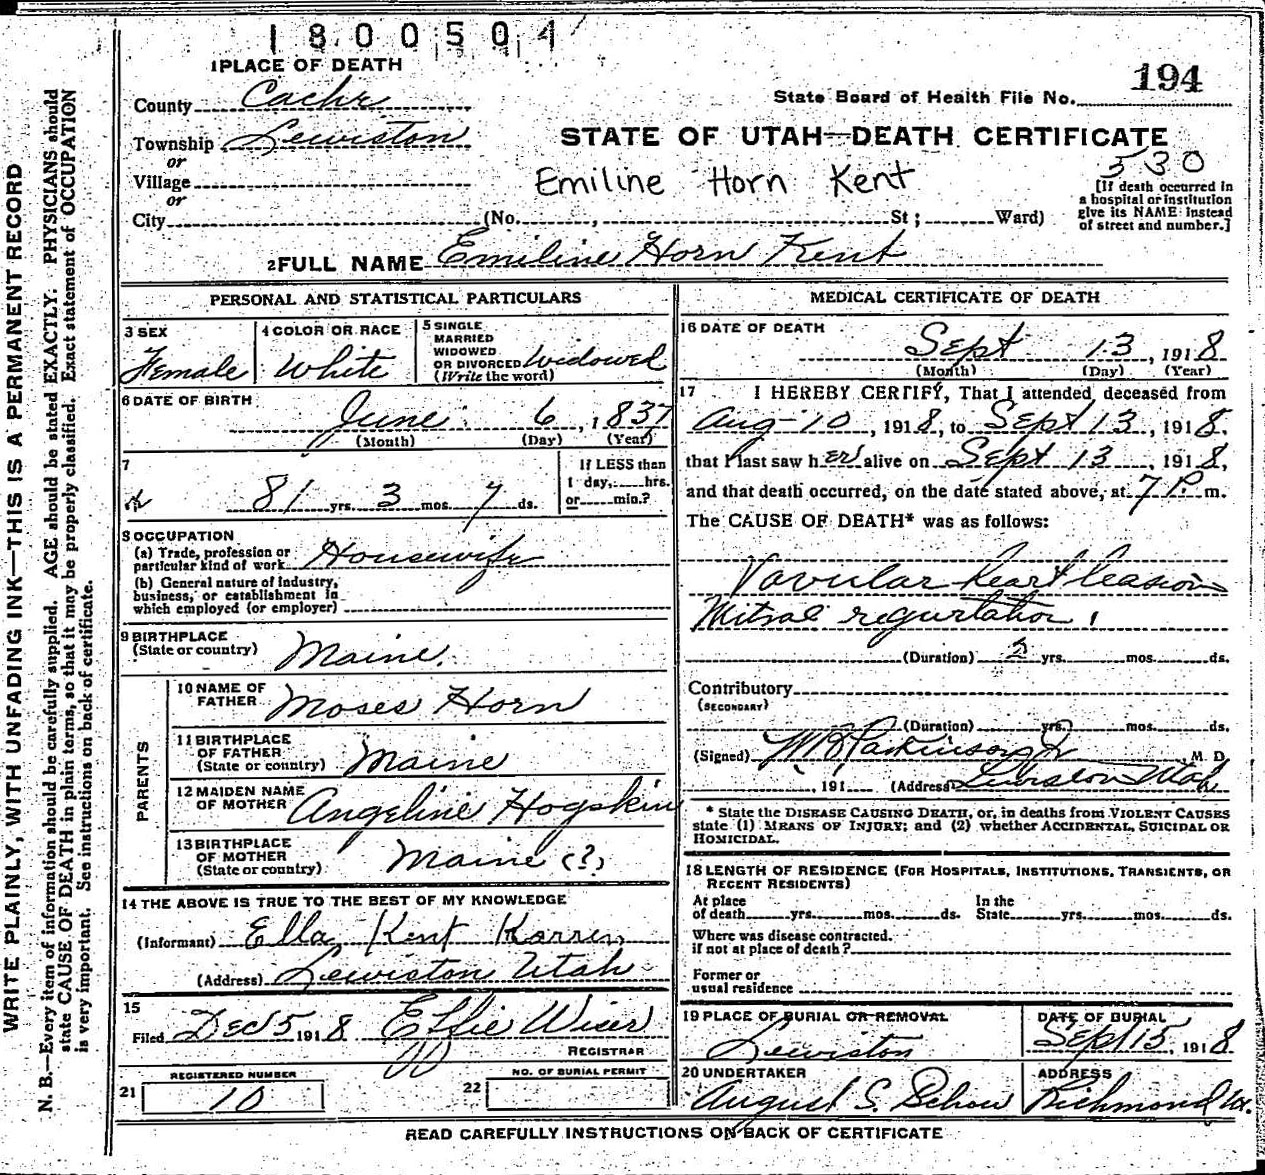 1800504
1 PLACE OF DEATH
194
County Cache
State Board of Health File No.
Township Lewiston
STATE OF UTAH—DEATH CERTIFICATE
or
530
Village
Emiline Horn Kent
or
[If death occurred in
a hospital or institution
give its NAME instead
of street and number.]
City (No. , St ; Ward)
2 FULL NAME Emiline Horn Kent
PERSONAL AND STATISTICAL PARTICULARS
3 SEX
Female
4 COLOR OR RACE
White
5 SINGLE
MARRIED
WIDOWED
OR DIVORCED Widowed
(Write the word)
6 DATE OF BIRTH
June 6, 1837
(Month) (Day) (Year)
7
81 yrs. 3 mos. 7 ds.
If LESS than
1 day, hrs.
or min.?
8 OCCUPATION
(a) Trade, profession or
particular kind of work Housewife
(b) General nature of industry,
business, or establishment in
which employed (or employer)
9 BIRTHPLACE
(State or country) Maine.
PARENTS
10 NAME OF
FATHER Moses Horn
11 BIRTHPLACE
OF FATHER
(State or country) Maine
12 MAIDEN NAME
OF MOTHER Angeline Hogskin
13 BIRTHPLACE
OF MOTHER
(State or country) Maine (?)
14 THE ABOVE IS TRUE TO THE BEST OF MY KNOWLEDGE
(Informant) Ella Kent Karren
(Address) Lewiston Utah
15
Filed Dec 5 1918 Effie Wiser
REGISTRAR
21 REGISTERED NUMBER
10
22 NO. OF BURIAL PERMIT
MEDICAL CERTIFICATE OF DEATH
16 DATE OF DEATH
Sept 13, 1918
(Month) (Day) (Year)
17 I HEREBY CERTIFY, That I attended deceased from
Aug-10, 1918, to Sept 13, 1918,
that I last saw her alive on Sept 13, 1918,
and that death occurred, on the date stated above, at 7 P. m.
The CAUSE OF DEATH* was as follows:
Vavular heart leasion
Mitral regurtation
(Duration) 2 yrs. mos. ds.
Contributory
(SECONDARY)
(Duration) yrs. mos. ds.
(Signed) W B Parkinson Jr M. D.
, 191 (Address) Lewiston Utah
* State the DISEASE CAUSING DEATH, or, in deaths from VIOLENT CAUSES
state (1) MEANS OF INJURY; and (2) whether ACCIDENTAL, SUICIDAL OR
HOMICIDAL.
18 LENGTH OF RESIDENCE (FOR HOSPITALS, INSTITUTIONS, TRANSIENTS, OR
RECENT RESIDENTS)
At place
of death yrs. mos. ds.
In the
State yrs. mos. ds.
Where was disease contracted.
if not at place of death?
Former or
usual residence
19 PLACE OF BURIAL OR REMOVAL
Lewiston
DATE OF BURIAL
Sept 15, 1918
20 UNDERTAKER
August S. Schow
ADDRESS
Richmond Ut.
READ CAREFULLY INSTRUCTIONS ON BACK OF CERTIFICATE
WRITE PLAINLY, WITH UNFADING INK—THIS IS A PERMANENT RECORD
N. B.—Every item of information should be carefully supplied. AGE should be stated EXACTLY. PHYSICIANS should
state CAUSE OF DEATH in plain terms, so that it may be properly classified. Exact statement of OCCUPATION
is very important. See instructions on back of certificate.